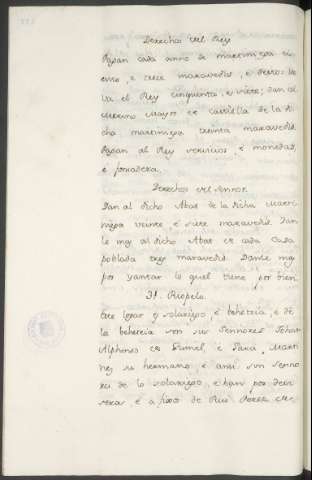 Derechos del Rey
Pagan cada anno de martiniega
e trece maravedis, e
va el Rey cinquenta, e siete; dan al
Merino Mayor de Castilla de la di
cha martiniega treinta maravedis.
Pagan al Rey servicios, e monedas,
e fonsadera.
Derechos del Sennor.
Dan al dicho Abat de la dicha Marti
niega veinte, e siete maravedis. Dan
le mas al dicho Abat de cada Casa
poblada tres maravedis. Danle mas
por yantar lo que tiene por bien.
Riopelo.
Este logar es solariego, e behetria, e de
la behetria son sus Sennores Johan
Alphonso de e Garci Marti
nez su hermano, e ansi son Senno
res de lo solariego, e han por devi
seros, e a fijos de Rui Perez de